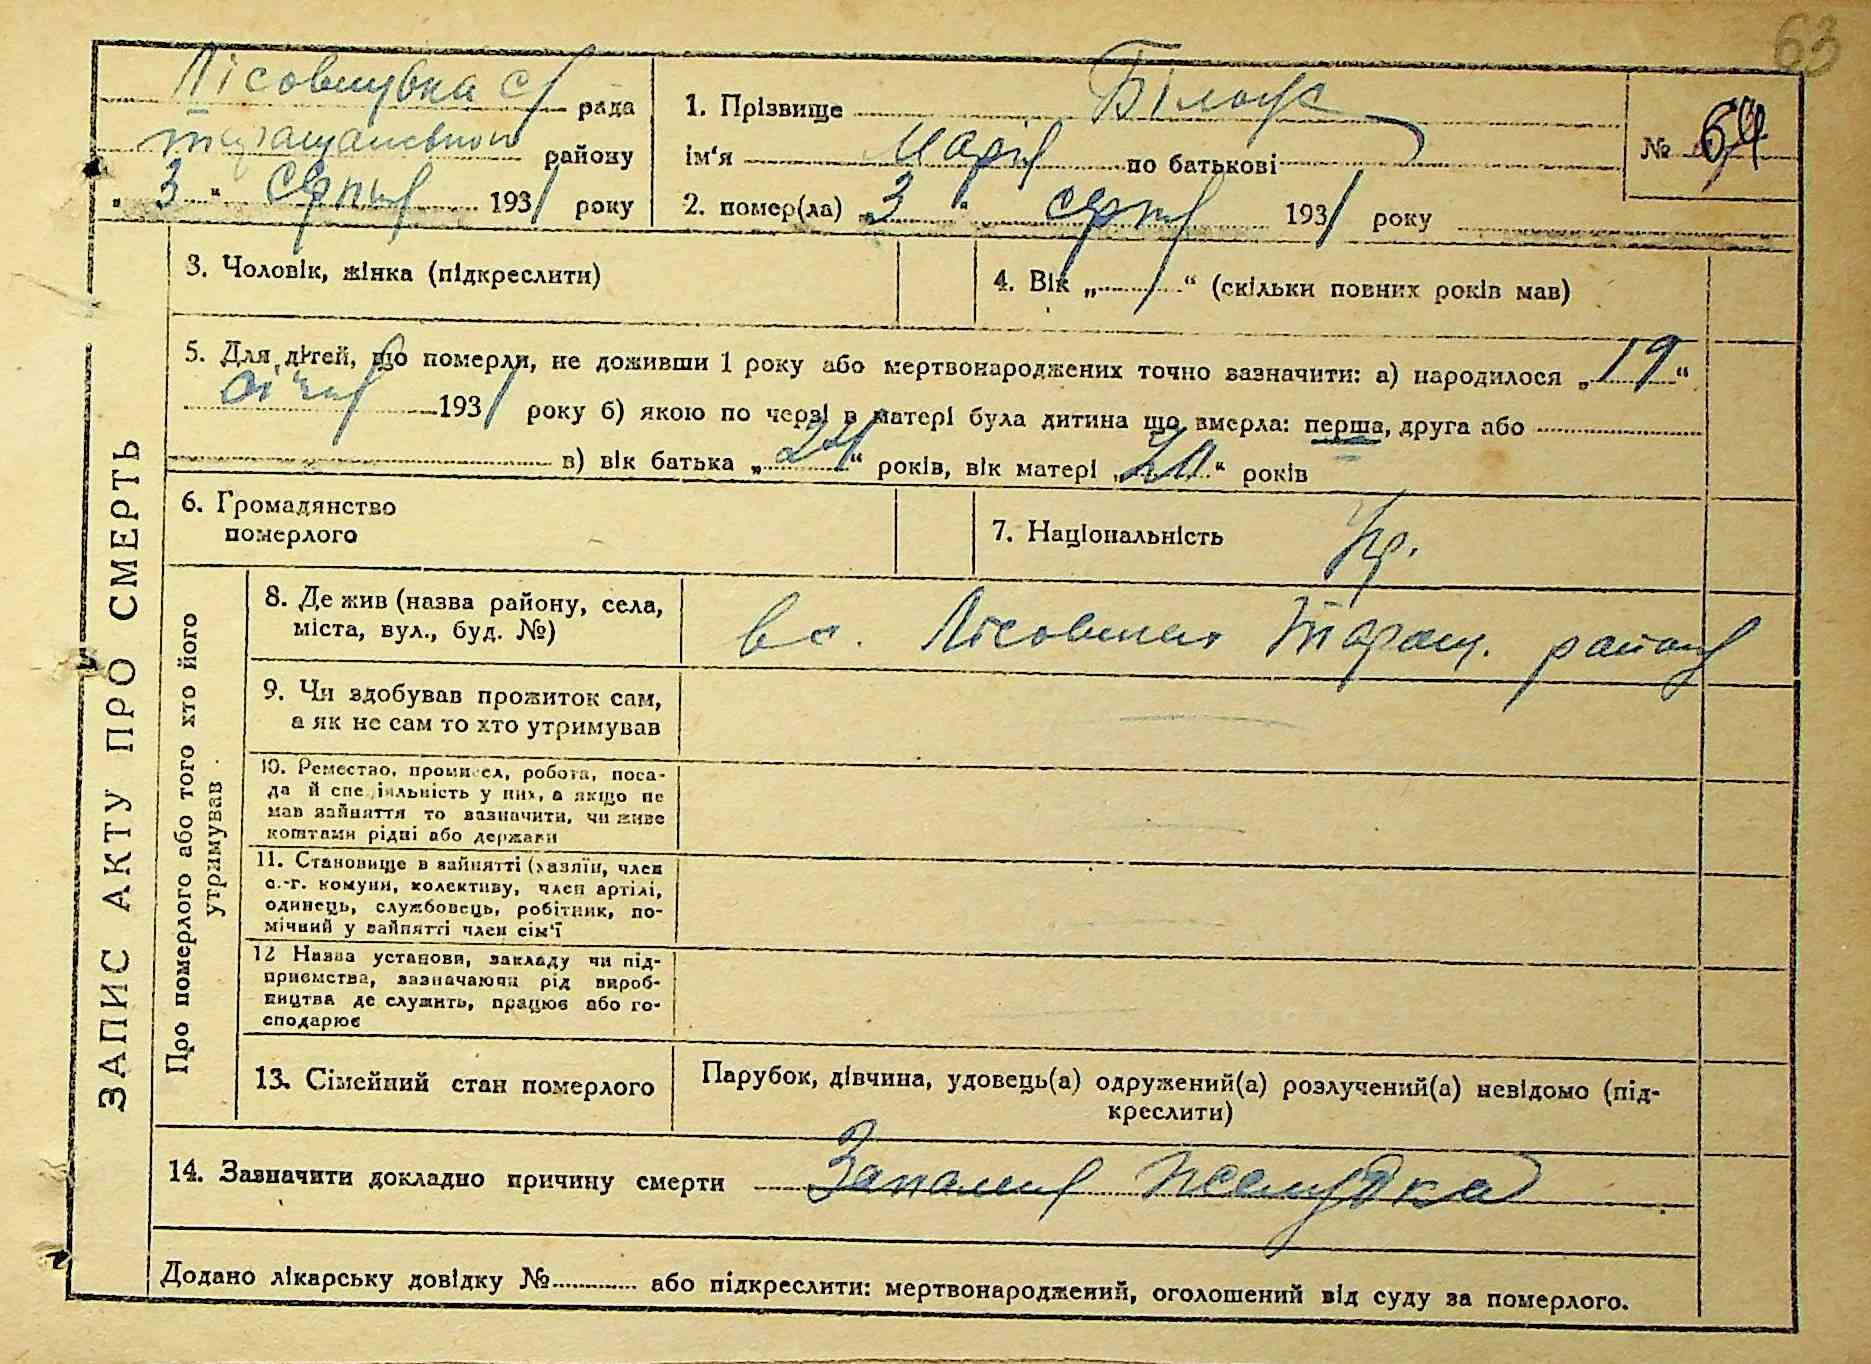 63
Лісовицька с/рада
Таращанського району
„3“ серпня 1931 року
1. Прізвище Білоус
ім'я Марія по батькові
2. помер(ла) „3“ серпня 1931 року
№ 64
ЗАПИС АКТУ ПРО СМЕРТЬ
3. Чоловік, жінка (підкреслити)
4. Вік „ “ (скільки повних років мав)
5. Для дітей, що померли, не доживши 1 року або мертвонароджених точно зазначити: а) народилося „19“
січня 1931 року б) якою по черзі в матері була дитина що вмерла: перша, друга або
в) вік батька „24“ років, вік матері „20“ років
6. Громадянство
померлого
7. Національність Укр.
Про померлого або того хто його
утримував
8. Де жив (назва району, села,
міста, вул., буд. №)
в с. Лісовичах Таращ. району
9. Чи здобував прожиток сам,
а як не сам то хто утримував
10. Ремество, промисел, робота, поса-
да й спеціяльність у них, а якщо не
мав зайняття то зазначити, чи живе
коштами рідні або держави
11. Становище в зайнятті (хазяїн, член
с.-г. комуни, колективу, член артілі,
одинець, службовець, робітник, по-
мічний у зайнятті член сім'ї
12 Назва установи, закладу чи під-
приємства, зазначаючи рід вироб-
ництва де служить, працює або го-
сподарює
13. Сімейний стан померлого
Парубок, дівчина, удовець(а) одружений(а) розлучений(а) невідомо (під-
креслити)
14. Зазначити докладно причину смерти Запалення желудка
Додано лікарську довідку № або підкреслити: мертвонароджений, оголошений від суду за померлого.